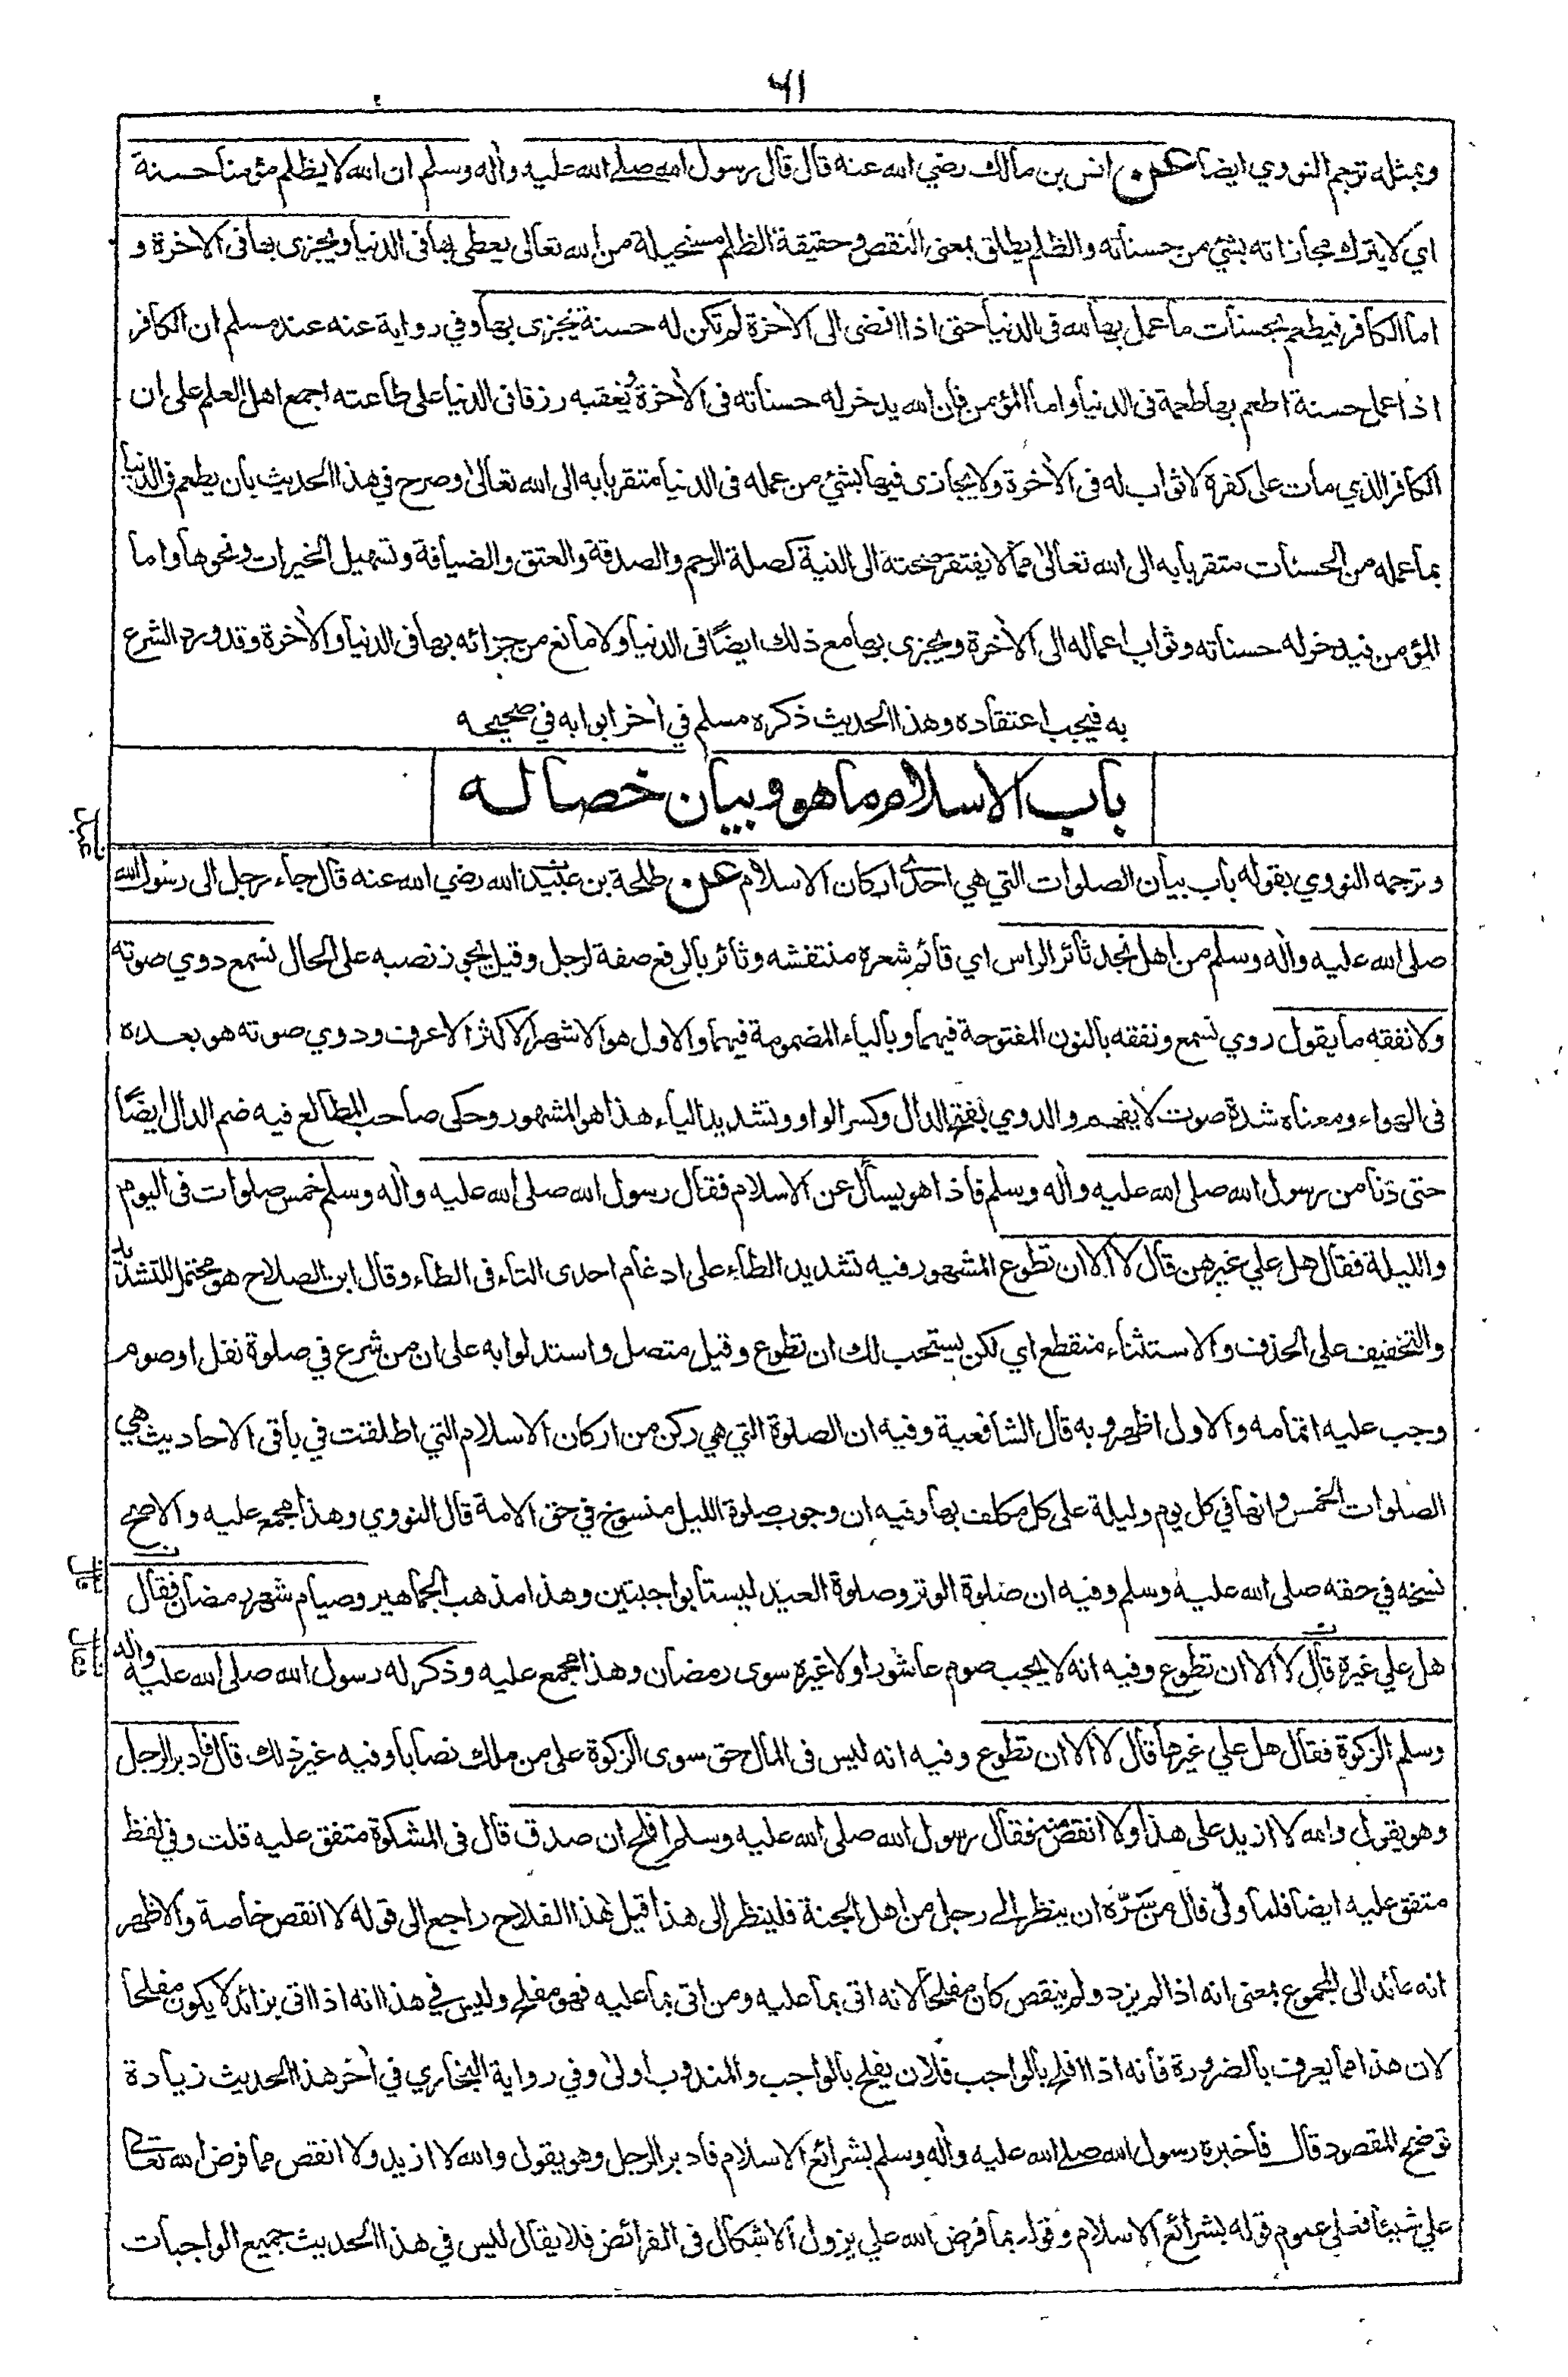 ٦١
وبمثله ترجم النووي ايضا عن انس بن مالك رضي الله عنه قال قال رسول الله صلى الله عليه واٰله وسلم ان الله لا يظلم مؤمنا حسنة
اي لا يترك مجازاته بشئ من حسناته والظلم يطلق بمعنى النقص وحقيقة الظلم مستحيلة من الله تعالى يعطى بها فى الدنيا ويجزى بها فى الاٰخرة و
اما الكافر فيطعم بحسنات ما عمل بها لله فى الدنيا حتى اذا افضى الى الاٰخرة لم تكن له حسنة يجزى بها وفي رواية عنه عند مسلم ان الكافر
اذا عمل حسنة اطعم بها طعمة فى الدنيا واما المؤمن فان الله يدخر له حسناته فى الاٰخرة ويعقبه رزقا فى الدنيا على طاعته اجمع اهل العلم على ان
الكافر الذي مات على كفره لا ثواب له فى الاٰخرة ولا يجازى فيها بشئ من عمله فى الدنيا متقربا به الى الله تعالىٰ وصرح في هذا الحديث بان يطعم فى الدنيا
بما عمله من الحسنات متقربا به الى الله تعالىٰ مما لا يفتقر صحته الى النية كصلة الرحم والصدقة والعتق والضيافة وتسهيل الخيرات ونحوها واما
المؤمن فيدخر له حسناته وثواب اعماله الى الاٰخرة ويجزى بها مع ذلك ايضًا فى الدنيا ولا مانع من جزائه بها فى الدنيا والاٰخرة وقد ورد الشرع
به فيجب اعتقاده وهذا الحديث ذكره مسلم في اٰخر ابوابه في صحيحه
باب الاسلام ما هو وبيان خصاله
وترجمه النووي بقوله باب بيان الصلوات التي هي احد اركان الاسلام عن طلحة بن عبيد الله رضي الله عنه قال جاء رجل الى رسول الله
صلى الله عليه واٰله وسلم من اهل نجد ثائر الراس اي قائم شعره منتفشه وثائر بالرفع صفة لرجل وقيل يجوز نصبه على الحال نسمع دوي صوته
ولا نفقه ما يقول روي نسمع ونفقه بالنون المفتوحة فيهما وبالياء المضمومة فيهما والاول هو الاشهر الاكثر الاعرف ودوي صوته هو بعده
فى الهواء ومعناه شدة صوت لا يفهم والدوي بفتح الدال وكسر الواو وتشديد الياء هذا هو المشهور وحكى صاحب المطالع فيه ضم الدال ايضًا
حتى دنا من رسول الله صلى الله عليه واٰله وسلم فاذا هو يسأل عن الاسلام فقال رسول الله صلى الله عليه واٰله وسلم خمس صلوات فى اليوم
والليلة فقال هل علي غيرهن قال لا الا ان تطوع المشهور فيه تشديد الطاء على ادغام احدى التاء فى الطاء وقال ابن الصلاح هو محتمل للتشديد
والتخفيف على الحذف والاستثناء منقطع اي لكن يستحب لك ان تطوع وقيل متصل واستدلوا به على ان من شرع في صلوة نفل او صوم
وجب عليه اتمامه والاول اظهر وبه قال الشافعية وفيه ان الصلوة التي هي ركن من اركان الاسلام التي اطلقت في باقى الاحاديث هي
الصلوات الخمس وانها في كل يوم وليلة على كل مكلف بها وفيه ان وجوب صلوة الليل منسوخ في حق الامة قال النووي وهذا مجمع عليه والاصح
نسخه في حقه صلى الله عليه وسلم وفيه ان صلوة الوتر وصلوة العيد ليستا بواجبتين وهذا مذهب الجماهير وصيام شهر رمضان فقال
هل علي غيره قال لا الا ان تطوع وفيه انه لا يجب صوم عاشورا ولا غيره سوى رمضان وهذا مجمع عليه وذكر له رسول الله صلى الله عليه واٰله
وسلم الزكوة فقال هل علي غيرها قال لا الا ان تطوع وفيه انه ليس فى المال حق سوى الزكوة على من ملك نصابا وفيه غير ذلك قال فادبر الرجل
وهو يقول والله لا ازيد على هذا ولا انقص منه فقال رسول الله صلى الله عليه وسلم افلح ان صدق قال فى المشكوة متفق عليه قلت وفي لفظ
متفق عليه ايضا فلما ولّى قال من سَرَّه ان ينظر الى رجل من اهل الجنة فلينظر الى هذا قيل هذا الفلاح راجع الى قوله لا انقص خاصة والاظهر
انه عائد الى المجموع بمعنى انه اذا لم يزد ولم ينقص كان مفلحا لانه اتى بما عليه ومن اتى بما عليه فهو مفلح وليس في هذا انه اذا اتى بزائد لا يكون مفلحا
لان هذا مما يعرف بالضرورة فانه اذا افلح بالواجب فلان يفلح بالواجب والمندوب اولىٰ وفي رواية البخاري في اٰخر هذا الحديث زيادة
توضح المقصود قال فاخبره رسول الله صلى الله عليه واٰله وسلم بشرائع الاسلام فادبر الرجل وهو يقول والله لا ازيد ولا انقص مما فرض الله تعالى
علي شيئا فعلى عموم قوله بشرائع الاسلام وقوله بما فرض الله علي يزول الاشكال فى الفرائض فلا يقال ليس في هذا الحديث جميع الواجبات